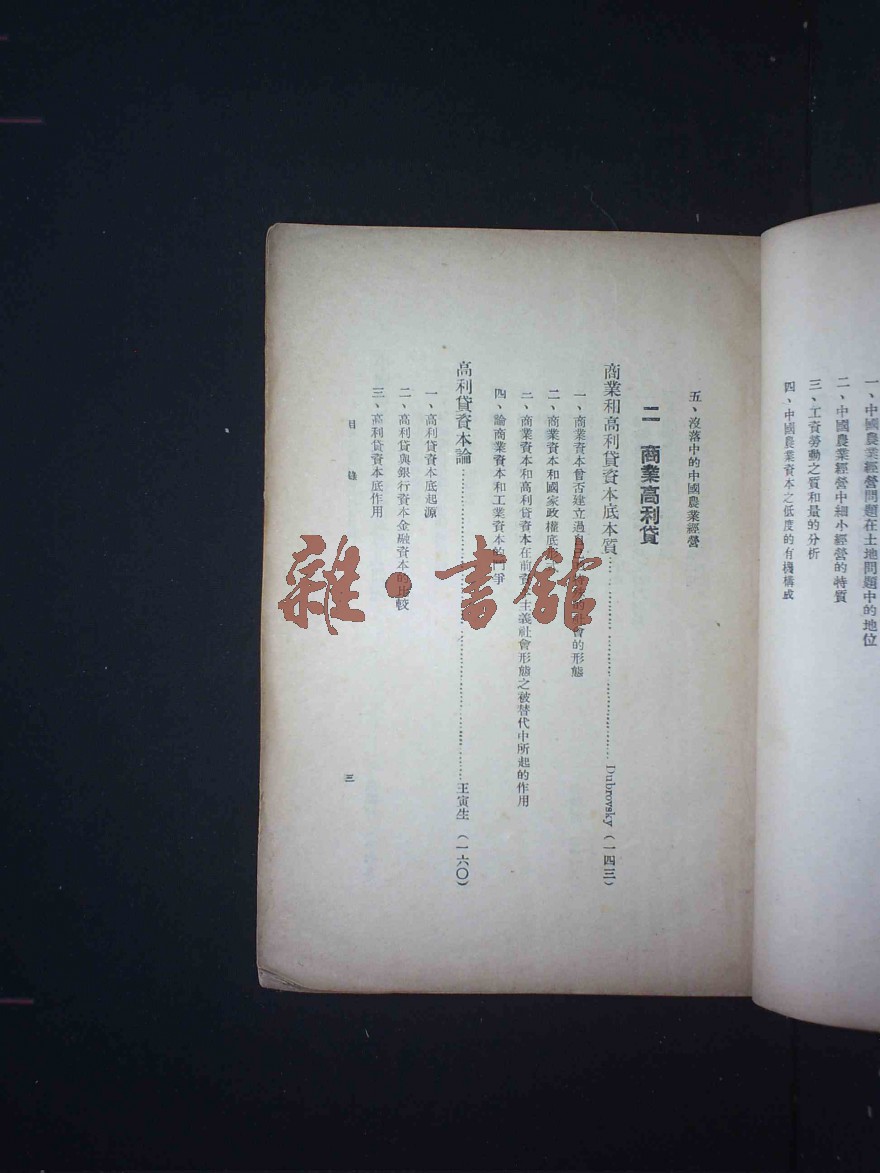 一、中國農業經營問題在土地問題中的地位
二、中國農業經營中細小經營的特質
三、工資勞動之質和量的分析
四、中國農業資本之低度的有機構成
五、沒落中的中國農業經營
二 商業高利貸
商業和高利貸資本底本質……Dubrovsky(一四三)
一、商業資本曾否建立過自己 的社會的形態
二、商業資本和國家政權底形
三、商業資本和高利貸資本在前資 主義社會形態之被替代中所起的作用
四、論商業資本和工業資本的鬥爭
高利貸資本論……王寅生(一六〇)
一、高利貸資本底起源
二、高利貸與銀行資本金融資本的比較
三、高利貸資本底作用
目 錄
三
雜·書館